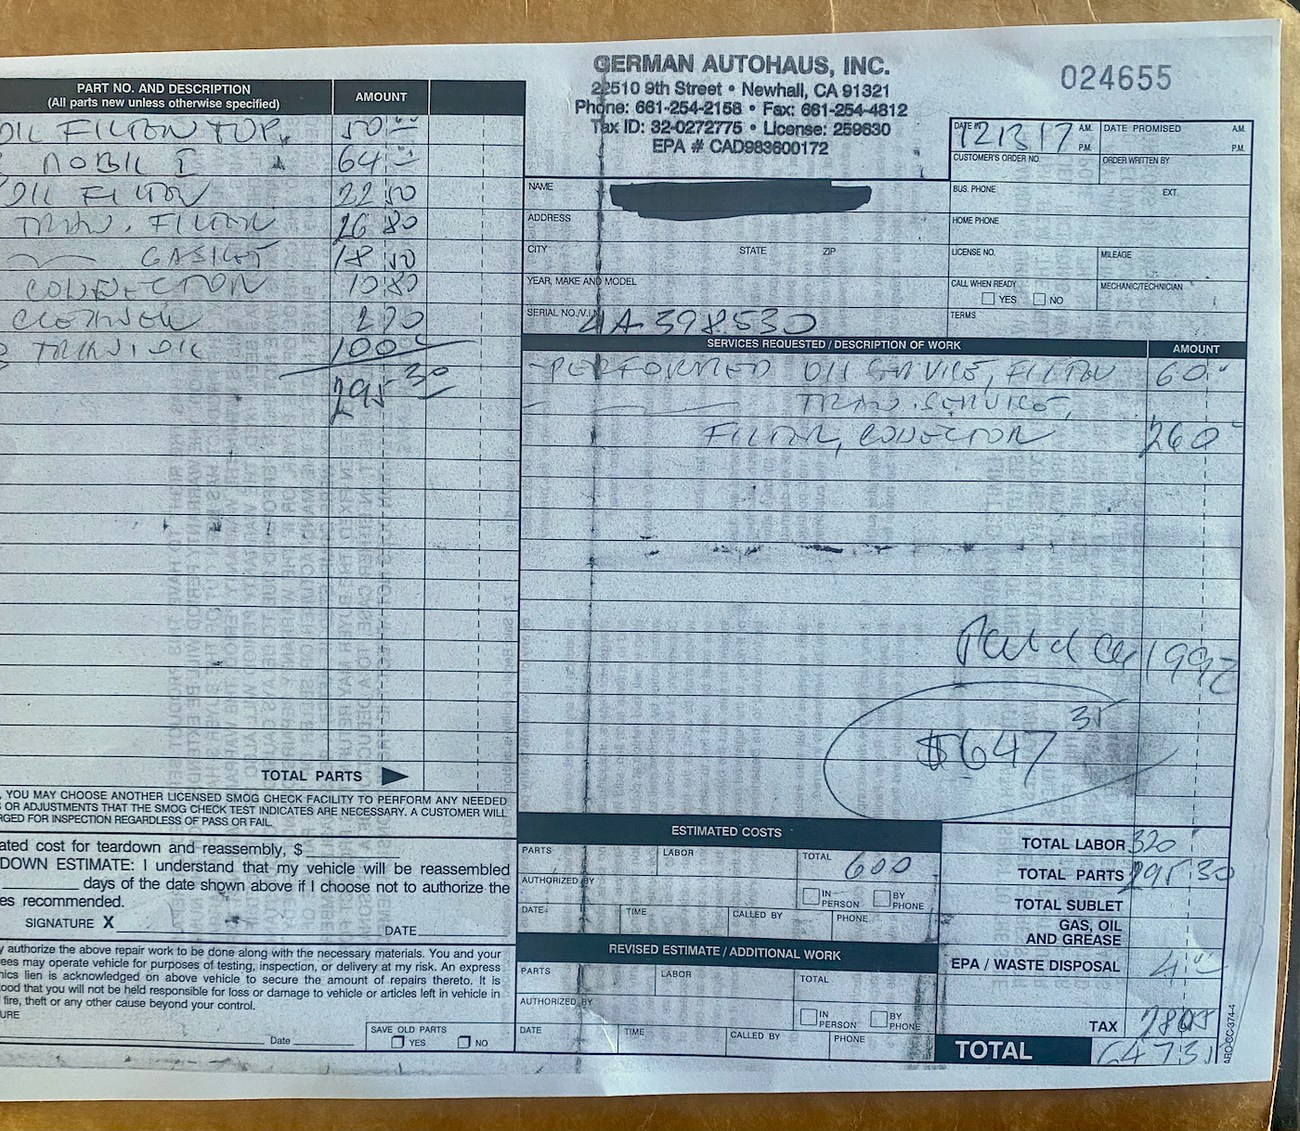 GERMAN AUTOHAUS, INC.
22510 9th Street • Newhall, CA 91321
Phone: 661-254-2158 • Fax: 661-254-4812
Tax ID: 32-0272775 • License: 259630
EPA # CAD983600172
024655
PART NO. AND DESCRIPTION
(All parts new unless otherwise specified)
AMOUNT
OIL FILTER TOP 50
MOBIL 1 64
OIL FILTER 22 50
TRAN. FILTER 26 80
GASKET 18 50
CONNECTOR 10 80
CLEANER 2 70
TRAN. OIL 100
295 30
TOTAL PARTS
, YOU MAY CHOOSE ANOTHER LICENSED SMOG CHECK FACILITY TO PERFORM ANY NEEDED
S OR ADJUSTMENTS THAT THE SMOG CHECK TEST INDICATES ARE NECESSARY. A CUSTOMER WILL
RGED FOR INSPECTION REGARDLESS OF PASS OR FAIL.
ated cost for teardown and reassembly, $
DOWN ESTIMATE: I understand that my vehicle will be reassembled
days of the date shown above if I choose not to authorize the
es recommended.
SIGNATURE X DATE
y authorize the above repair work to be done along with the necessary materials. You and your
ees may operate vehicle for purposes of testing, inspection, or delivery at my risk. An express
nics lien is acknowledged on above vehicle to secure the amount of repairs thereto. It is
ood that you will not be held responsible for loss or damage to vehicle or articles left in vehicle in
fire, theft or any other cause beyond your control.
URE
Date
SAVE OLD PARTS
YES NO
DATE 12 13 17 A.M. P.M.
DATE PROMISED A.M. P.M.
CUSTOMER'S ORDER NO. ORDER WRITTEN BY
NAME
BUS. PHONE EXT.
ADDRESS
HOME PHONE
CITY STATE ZIP
LICENSE NO. MILEAGE
YEAR, MAKE AND MODEL
CALL WHEN READY MECHANIC/TECHNICIAN
YES NO
SERIAL NO./V.I.N. 4A398530
TERMS
SERVICES REQUESTED / DESCRIPTION OF WORK AMOUNT
-PERFORMED OIL SERVICE, FILTER 60
TRAN. SERVICE,
FILTER, CONNECTOR 260
Paid 1992
$647 35
ESTIMATED COSTS
PARTS LABOR TOTAL 600
AUTHORIZED BY IN PERSON BY PHONE
DATE TIME CALLED BY PHONE
REVISED ESTIMATE / ADDITIONAL WORK
PARTS LABOR TOTAL
AUTHORIZED BY IN PERSON BY PHONE
DATE TIME CALLED BY PHONE
TOTAL LABOR 320
TOTAL PARTS 295 30
TOTAL SUBLET
GAS, OIL
AND GREASE
EPA / WASTE DISPOSAL 4
TAX 28 05
TOTAL 647 35
ARO-CC-374-4